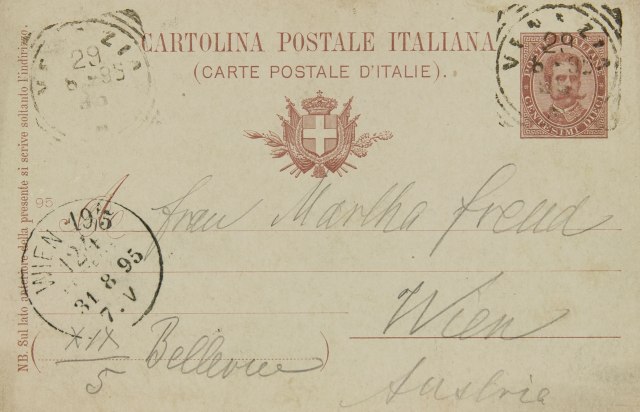 CARTOLINA POSTALE ITALIANA
(CARTE POSTALE D'ITALIE).
VENEZIA
29
8-95
VENEZIA
29
POSTE ITALIANE
CENTESIMI DIECI
NB. Sul lato anteriore della presente si scrive soltanto l'indirizzo.
95
A
Frau Martha Freud
WIEN 19/5
31.8.95
7.V
Wien
XIX
5
Bellevue
Austria